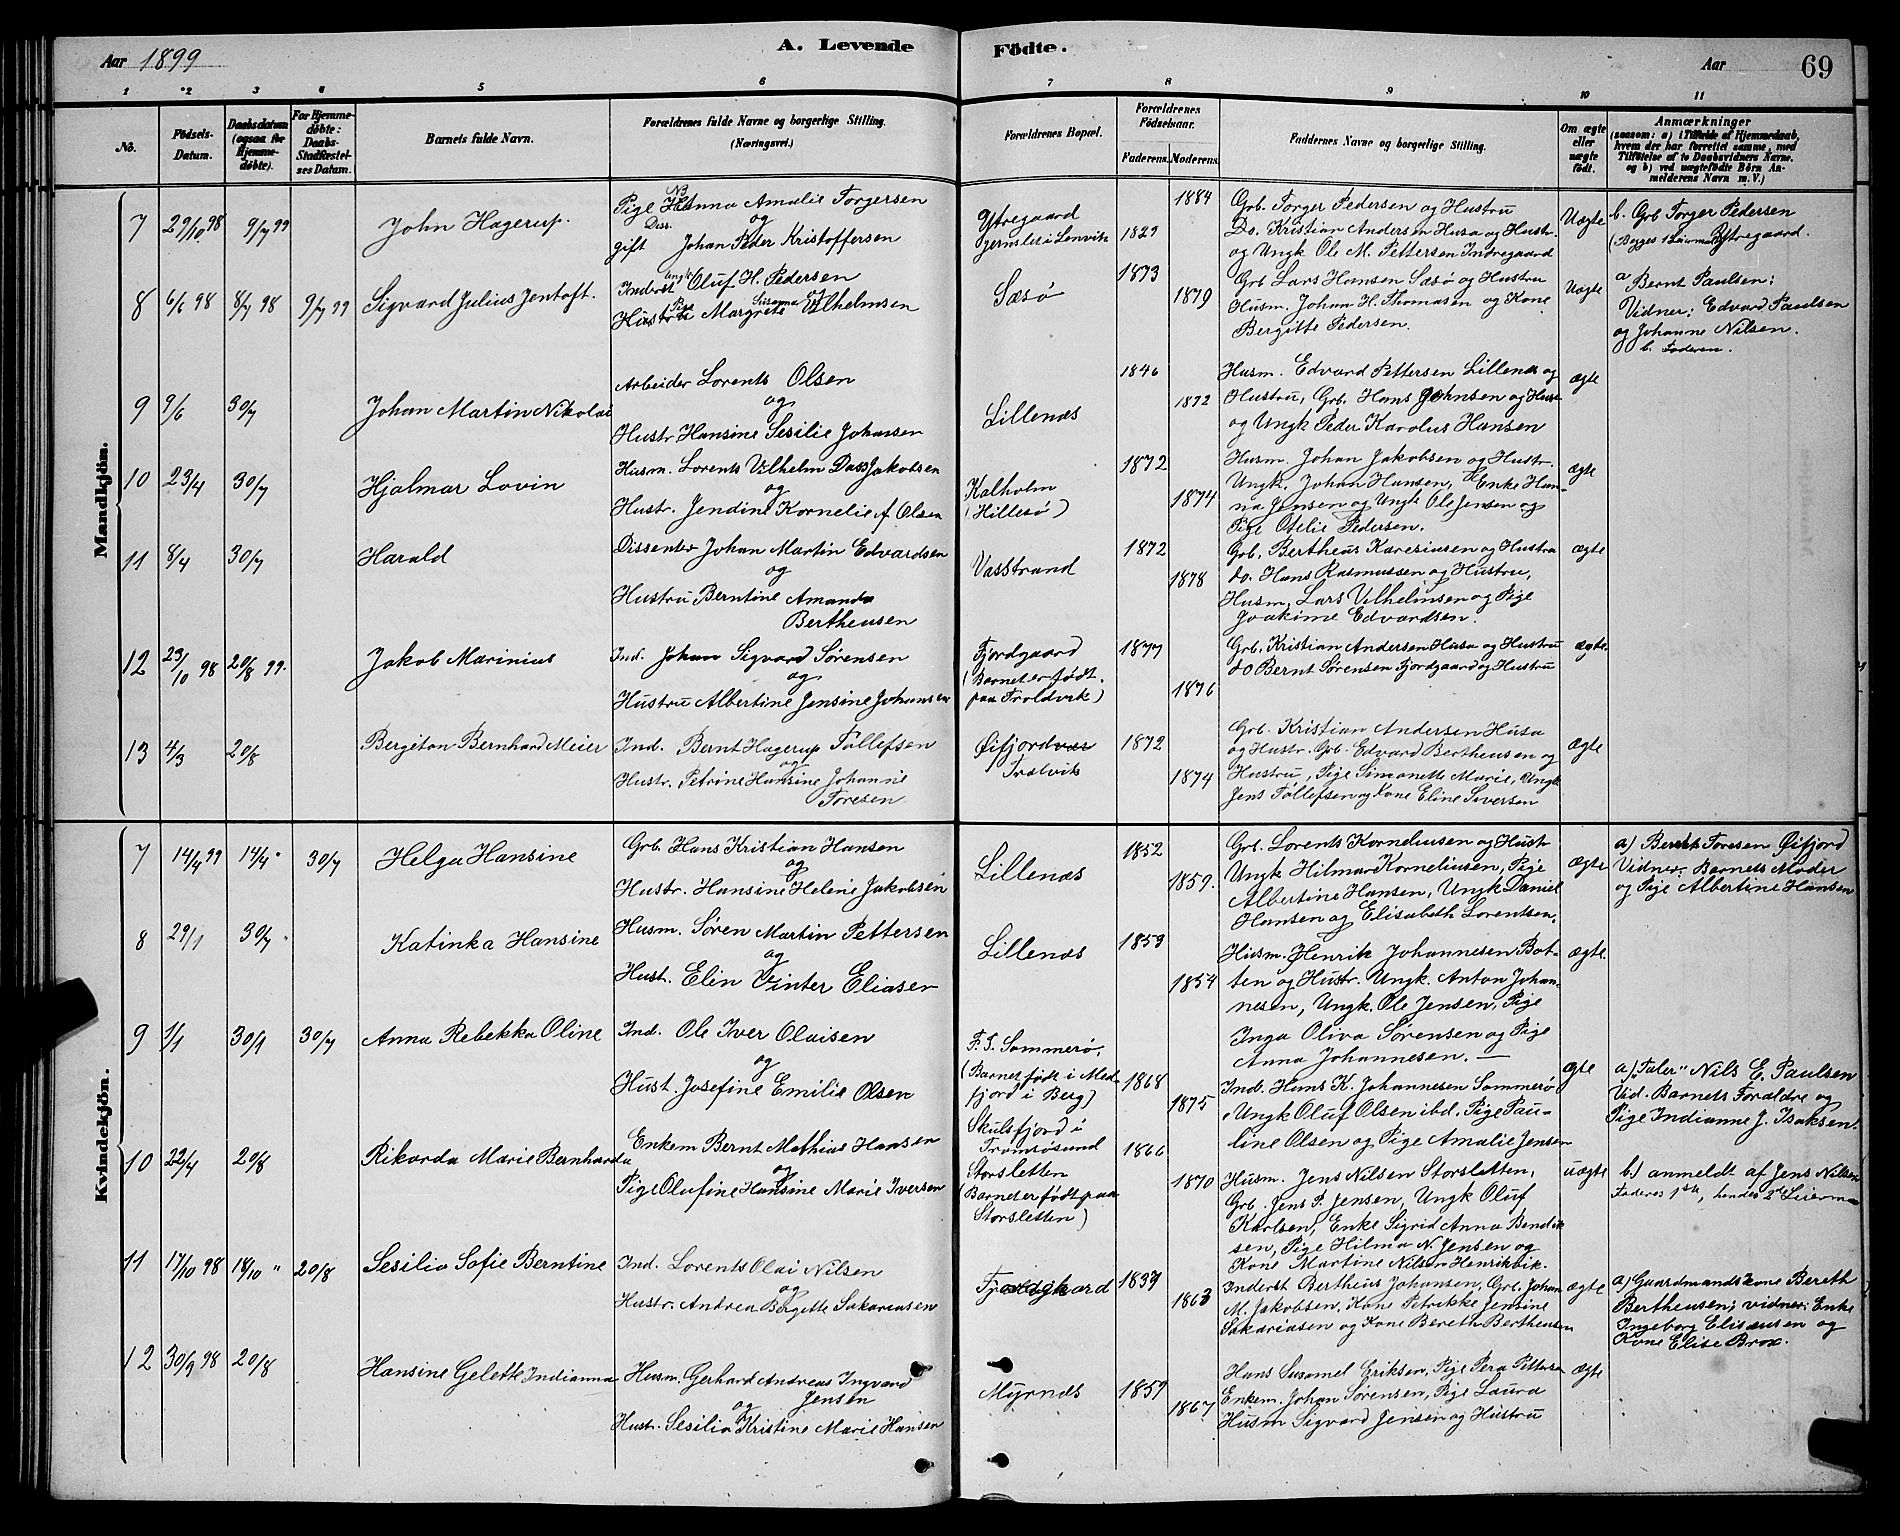 Aar 1899
A. Levende
Födte.
Aar
69
1 2 3 4 5 6 7 8 9 10 11
No.
Födsels-Datum.
Daabsdatum (ogsaa for Hjemme-døbte).
For Hjemme-døbte: Daabs-Stadfæstel-ses Datum.
Barnets fulde Navn.
Forældrenes fulde Navne og borgerlige Stilling. (Næringsvei.)
Forældrenes Bopæl.
Forældrenes Födselsaar.
Faderens. Moderens.
Faddernes Navne og borgerlige Stilling.
Om ægte eller uægte født.
Anmærkninger
(saasom: a) i Tilfælde af Hjemmedaab,
hvem der har forrettet samme, med
Tilføielse af to Daabsvidners Navne.
og b) ved uægtefødte Börn An-
melderens Navn m. V.)
Mandkjön.
7 29/10 98 9/7 99 John Hagerup.
Pige Anna Amalie Torgersen
og
Diss. gift Johan Peder Kristoffersen
Ytregaard
Gjernslet i Lenvik
1829 1884
Grb. Torger Pedersen og Hustru
Do. Kristian Andersen Husa og Hustr.
og Ungk Ole M. Pettersen Indregaard
Uægte
b. Grb Torger Pedersen
(Begges 1 Leiermaal) Ytregaard.
8 6/6 98 8/7 98 9/7 99 Sigvard Julius Jentoft.
Inderst Ungk Oluf H. Pedersen
og
Hustru Pige Margrete Susanna Vilhelmsen
Sæsø
1873 1879
Grb Lars Hansen Sæsø og Hustru
Husm. Johan H. Thomasen og Kone
Bergitte Pedersen.
Uægte
a Bernt Paulsen;
Vidner: Edvard Paulsen
og Johanne Nilsen.
b. Faderen.
9 9/6 30/7 Johan Martin Nikolai
Arbeider Lorents Olsen
og
Hustr Hansine Sesilie Johansen
Lillenæs
1846 1872
Husm. Edvard Pettersen Lillenæs og
Hustru, Grb. Hans Johnsen og Hustr
og Ungk Peder Karolus Hansen
ægte
10 23/4 30/7 Hjalmar Lovin
Husm. Lorents Vilhelm Dass Jakobsen
og
Hustr. Jendine Kornelie f. Olsen
Kalholm
(Hillesø)
1872 1874
Husm. Johan Jakobsen og Hustr.
Ungk. Johan Hansen, Enke Han-
na Jensen og Ungk Ole Jensen og
Pige Otelie Pedersen.
ægte
11 8/4 30/7 Harald
Dissenter Johan Martin Edvardsen
og
Hustru Berntine Amanda
Bertheusen
Vasstrand
1872 1878
Grb. Bertheus Karesiusen og Hustru
do. Hans Rasmussen og Hustru,
Husm. Lars Vilhelmsen og Pige
Joakime Edvardsen.
ægte
12 23/10 98 20/8 99. Jakob Marinius
Ind. Johan Sigvard Sørensen
og
Hustru Albertine Jensine Johansen
Fjordgaard
(Barnet er født
paa Troldvik)
1877 1876
Grb. Kristian Andersen Husa og Hustru
do Bernt Sørensen Fjordgaard og Hustru
ægte.
13 4/3 20/8 Bergiton Bernhard Meier
Ind. Bernt Hagerup Tollefsen
og
Hustr. Petrine Hansine Johanne
Toresen
Øifjordvær
Trælvik
1872 1874
Grb. Kristian Andersen Husa
og Hustr. Grb. Edvard Bertheusen og
Hustru, Pige Simonette Marie, Ungk
Jens Tollefsen og Kone Eline Siversen
ægte
Kvindekjön.
7 14/4 99 14/4 " 30/7 Helga Hansine
Grb. Hans Kristian Hansen
og
Hustr. Hansine Helene Jakobsen
Lillenæs
1852 1859.
Grb. Lorents Korneliusen og Hustr
Ungk Hilmar Korneliusen, Pige
Albertine Hansen, Ungk Daniel
Hansen og Elisabeth Lorentsen,
ægte
a) Bernt Toresen Øifjord
Vidner: Barnets Moder
og Pige Albertine Hansen
8 29/1 30/7 " Katinka Hansine
Husm. Søren Martin Pettersen
og
Hust. Elen Vinter Eliasen
Lillenæs
1853 1854
Husm. Henrik Johannesen Bot-
ten og Hustr. Ungk. Anton Johan-
nesen, Ungk. Ole Jensen, Pige
Inga Oliva Sørensen og Pige
Anna Johannesen. —
ægte.
9 1/1 30/1 30/7 Anna Rebekka Oline
Ind. Ole Iver Olaisen
og
Hust. Josefine Emilie Olsen
F. S. Sommerø,
(Barnet født i Med-
fjord i Berg)
1868 1875
Ind. Hans K. Johannesen Sommerø
Ungk Oluf Olsen ibd. Pige Pau-
line Olsen og Pige Amalie Jensen
ægte
a) "Taler" Nils E. Paulsen
Vid. Barnets Forældre og
Pige Indianne J. Isaksen.
10 22/4 20/8 Rikarda Marie Bernharda
Enkem Bernt Mathias Hansen
og
Pige Olufine Hansine Marie Iversen
Skulsfjord i
Tromsøsund
Storsletten
(Barnet er født paa
Storsletten)
1866 1870
Husm. Jens Nilsen Storsletten,
Grb. Jens P. Jensen, Ungk Oluf
Karlsen, Enke Sigrid Anna Bendik-
sen, Pige Hilma N. Jensen og
Kone Martine Nilsen Henrikvik.
uægte
b.) anmeldt af Jens Nilsen
Faderes 1ste, hendes 2det Leierm.
11 17/10 98 18/10 " 20/8 Sesilie Sofie Berntine
Ind. Lorents Olai Nilsen
og
Hustr. Andrea Bergette Sakariasen
1837 1863
Inderst Bertheus Johansen, Grb. Johan
M. Jakobsen, Kone Petrikke Jensine
Sakariasen og Kone Bereth Bertheusen
ægte
a) Gaardmandskone Bereth
Bertheusen; vidner: Enke
Ingeborg Eliseussen og
Kone Elise Brox.
12 30/9 98 20/8 Hansine Gelette Indianna
Husm. Gerhard Andreas Ingvard
og Jensen
Hustr. Sesilie Kristine Marie Hansen
Myrnæs
1859 1867
Hans Susamel Eriksen, Pige Pera Pettersen
Enkem. Johan Sørensen, Pige Laura
Husm Sigvard Jensen og Hustru
ægte